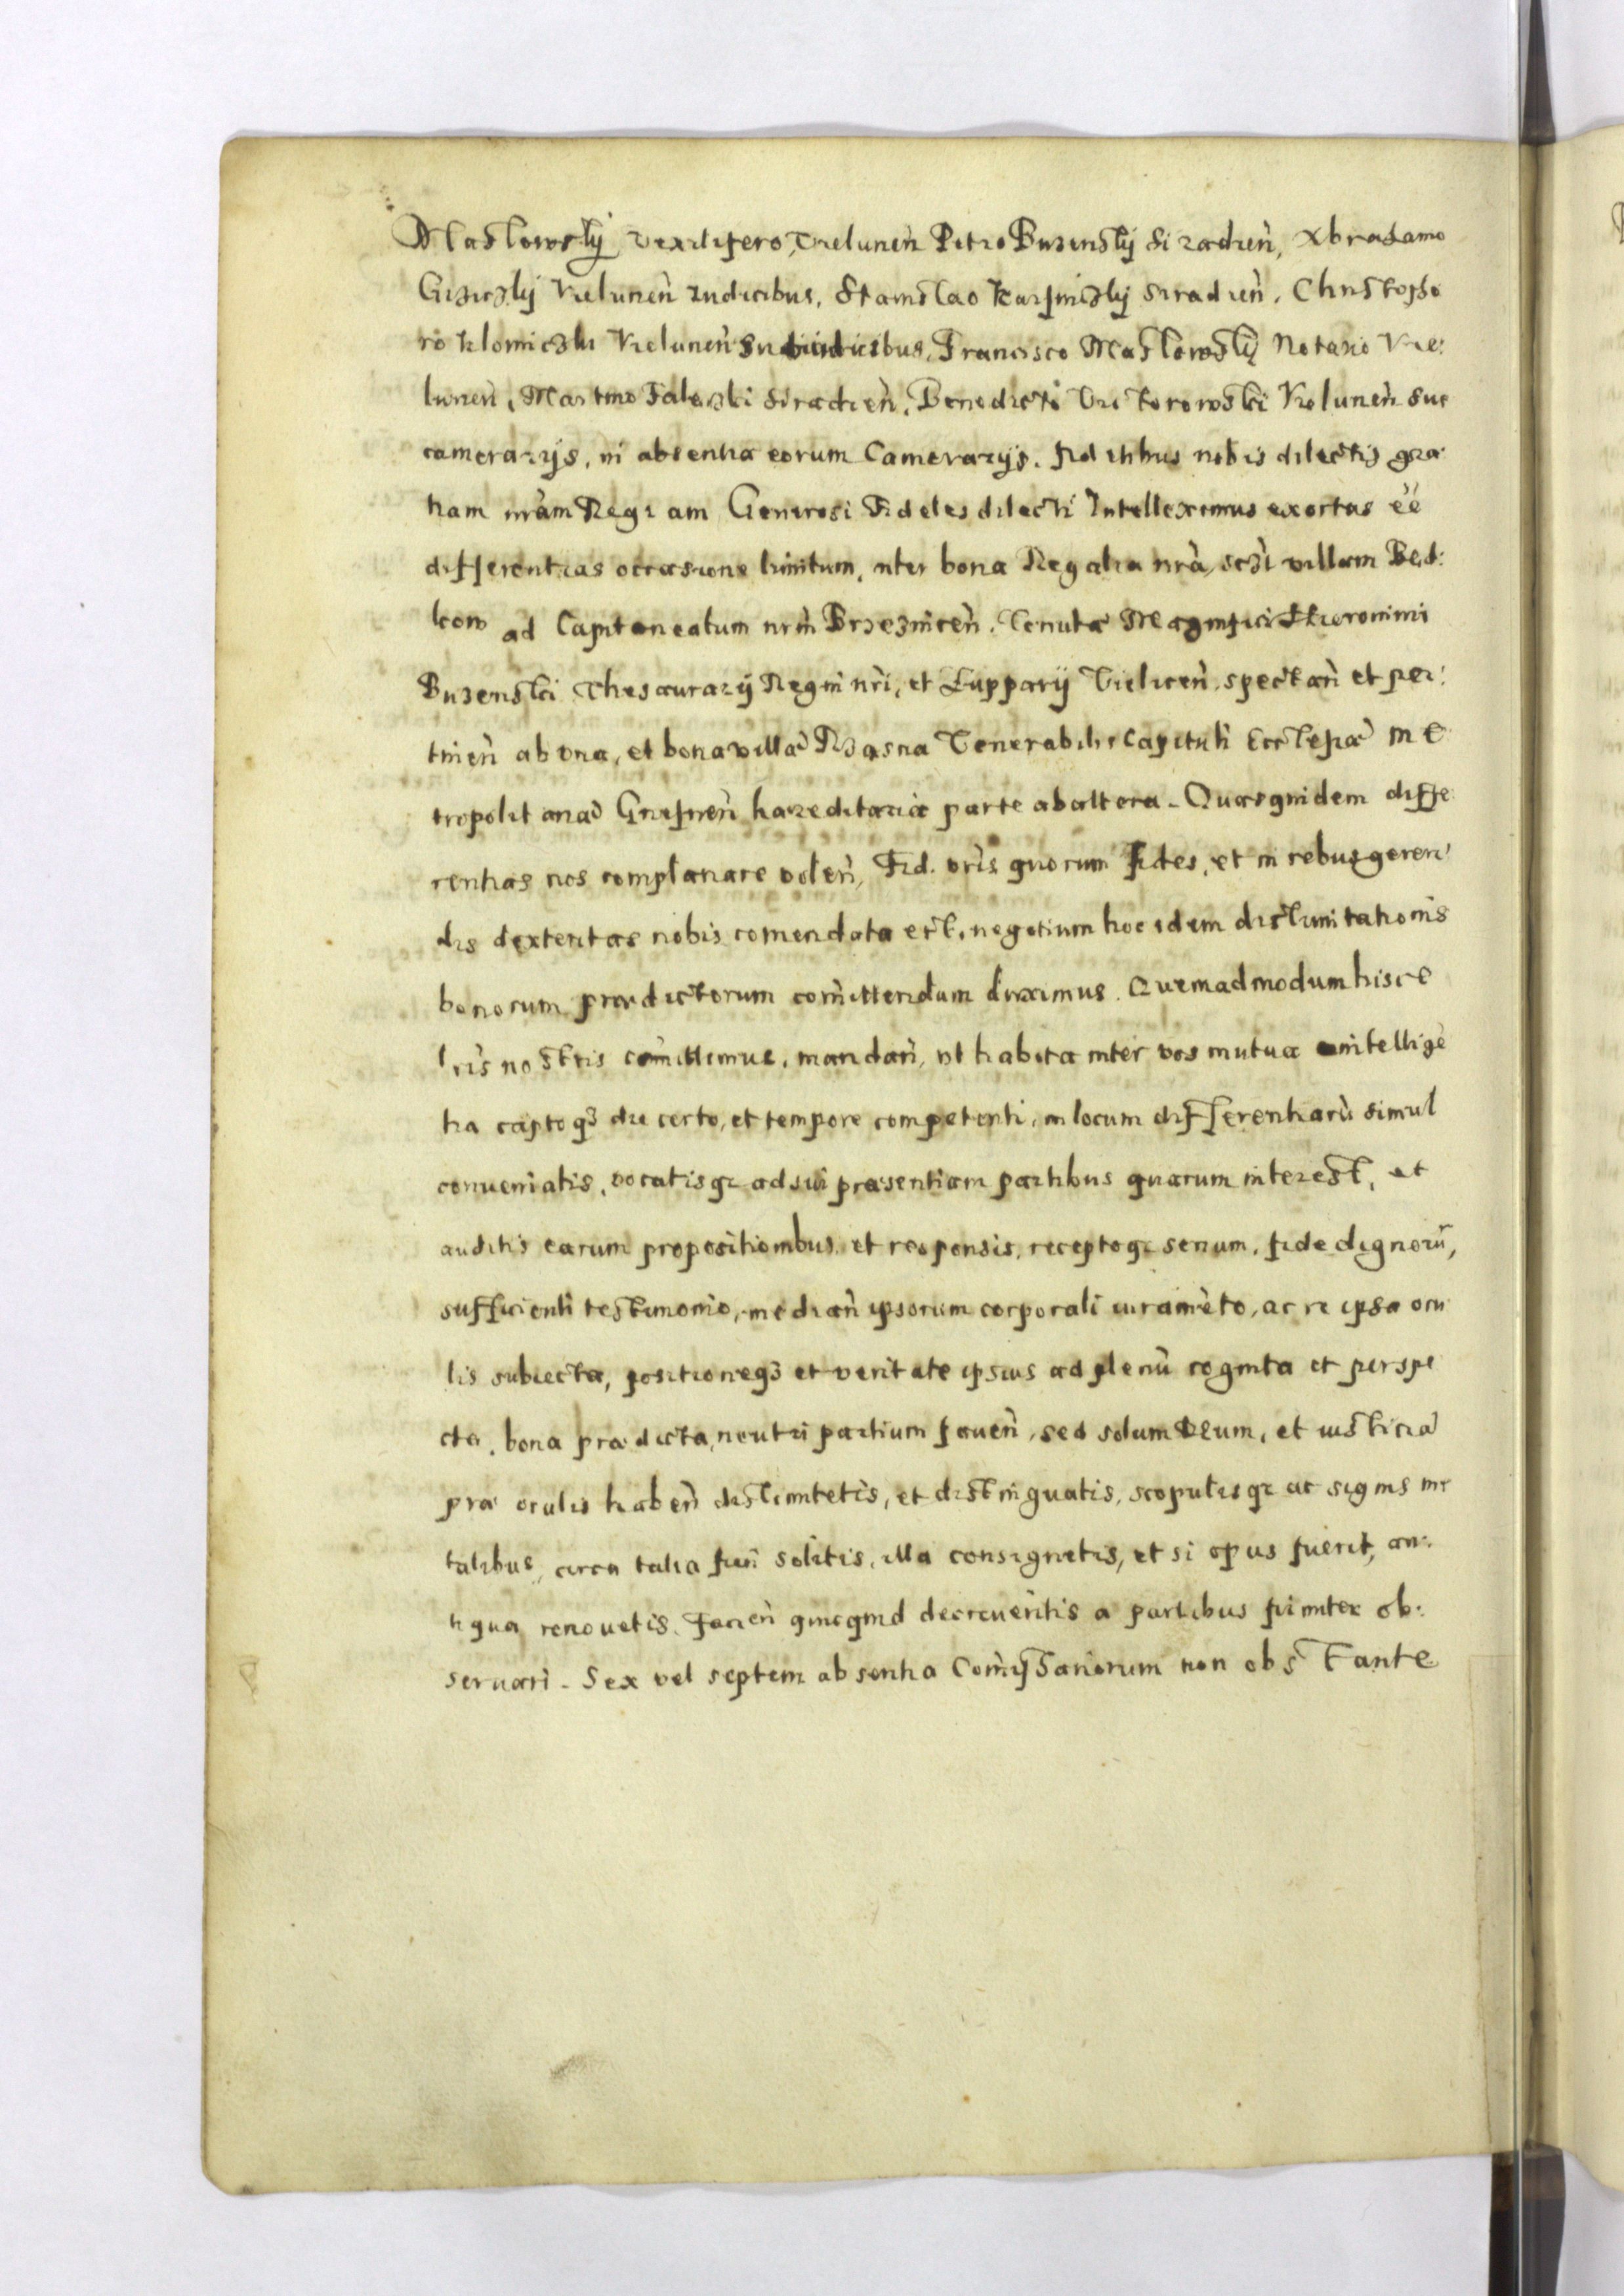 Maslowskij vexilifero, Vielunen̄ Petro Buzenskij Siradien̄, Abrahamo
Gizickij Vielunen̄ Iudicibus, Stanislao Karsnickij Siradien̄, Christopho
ro klomicki Vielunen̄ Sudiudicibus, Francisco Maslowskij Notario Vie:
lunen̄, Martino Falecki Siradien̄, Benedicto Victorowski Vielunen̄ Suc
camerarijs, in absentia eorum Camerarijs, fidelibus nobis dilectis gra
tiam nr̄am Regiam Generosi Fideles dilecti Intelleximus exortas eē
differentias occasione limitum, inter bona Regalia nrā, sczi villam Bed:
kow ad Capitaneatum nrm̄ Brzeznicen̄. Tenutæ Magnifici Hieronimi
Buzenski Thesaurarij Regni nrī, et Zupparij Vielicen̄. spectan̄ et per:
tinen̄ ab vna, et bona villæ Rzasna Venerabilis Capituli Ecclesiæ me
tropolitanæ Gnesnen̄ hæreditariæ parte ab altera. Quasquidem diffe
rentias nos complanare volen̄, Fid. vrīs quorum fides, et in rebus geren
dis dexteritas nobis comendata est, negotium hoc idem dislimitationis
bonorum prædictorum com̄ittendum duximus. Quemadmodum hisce
lrīs nostris com̄ittimus, mandan̄, ut habita inter vos mutua intellige
tia captoq3 die certo, et tempore competenti, in locum differentiarū simul
conueniatis, vocatisq3 ad sui præsentiam partibus quarum interest, et
auditis earum propositionibus et responsis, receptoq3 senum, fide dignorū,
sufficienti testimonio, median̄ ipsorum corporali iuramēto, ac re ipsa ocu
lis subiecta, positioneq3 et veritate ipsius ad plenū cognita et perspe
cta, bona prædicta, neutri partium fauen̄, sed solum Deum, et iusticiā
præ oculis haben̄ dislimitetis, et distinguatis, scopulisq3 ac signis me
talibus, circa talia fieri solitis, illa consignetis, et si opus fuerit, an:
tiqua renouetis. Facien̄ quicquid decreueritis a partibus firmiter ob:
seruari. Sex vel septem absentia Com̄issariorum non obstante